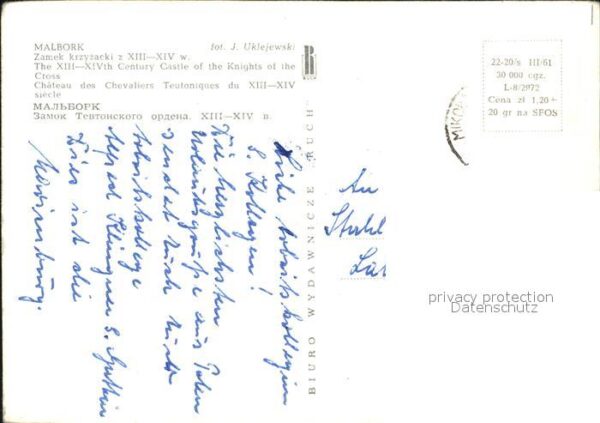 MALBORK fot. J. Uklejewski
Zamek krzyżacki z XIII—XIV w.
The XIII—XIVth Century Castle of the Knights of the
Cross
Château des Chevaliers Teutoniques du XIII—XIV
siècle
МАЛЬБОРК
Замок Тевтонского ордена. XIII—XIV в.
BIURO WYDAWNICZE RUCH
22-20/s III/61
30 000 egz.
L-8/2972
Cena zł 1,20 +
20 gr na SFOS
MIKO
Liebe Arbeitskollegin
u. Kollegen!
Die herzlichsten
Urlaubsgrüße aus Polen
sendet Euch Euer
Arbeitskollege
Alfred Klingner u. Gattin
Dies ist die
Marienburg.
An
privacy protection
Datenschutz